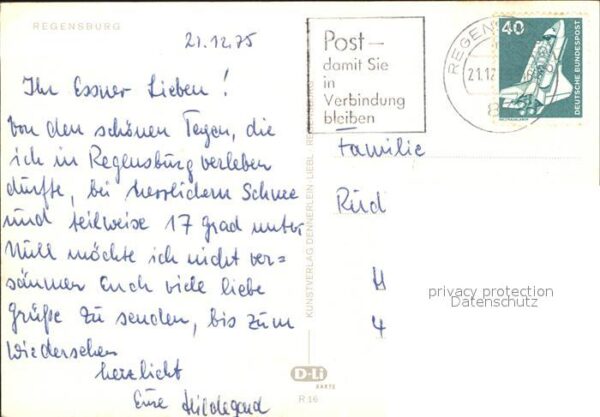 REGENSBURG
21.12.75
Ihr Essner Lieben!
Von den schönen Tagen, die
ich in Regensburg verleben
durfte, bei herrlichem Schnee
und teilweise 17 Grad unter
Null möchte ich nicht ver-
säumen Euch viele liebe
Grüße zu senden, bis zum
Wiedersehen
herzlichst
Eure Hildegard
Post –
damit Sie
in
Verbindung
bleiben
REGENS
21.12
8
40
DEUTSCHE BUNDESPOST
Familie
Rud
H
4
privacy protection
Datenschutz
KUNSTVERLAG DENNERLEIN-LIEBL
D-Li
KARTE
R 16